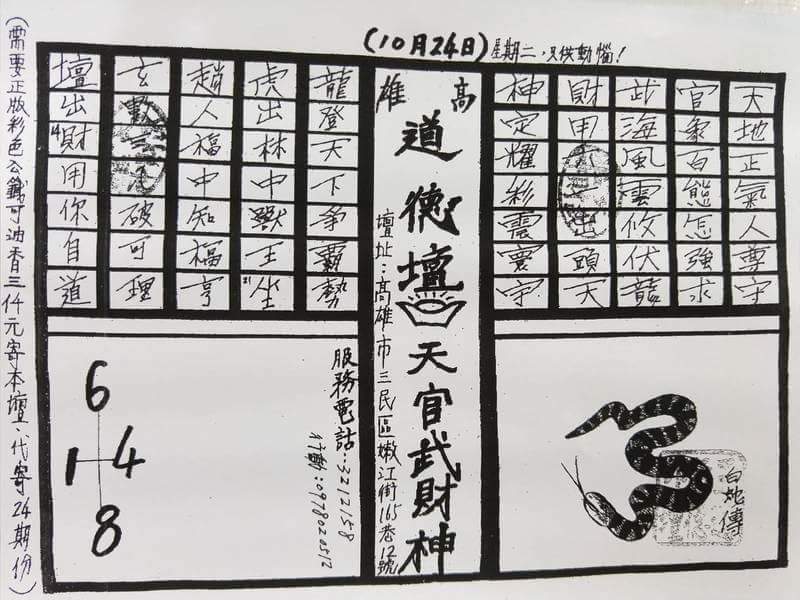 (10月24日)星期二，只供動惱！
天地正氣人尊守
官象百態怎強求
武海風雲攸伏龍
財甲出頭天
神定耀彩震寰宇
高雄
道德壇天官武財神
壇址：高雄市三民區嫩江街165巷12號
龍登天下爭霸勢
虎出林中獸王坐
趙人福中知福亨
玄數破可理
壇出財用你自道
白蛇傳
服務電話：3212158
行動：0978020512
6
1 4
8
(需要正版彩色公籤可油香三仟元寄本壇．代寄24期份)